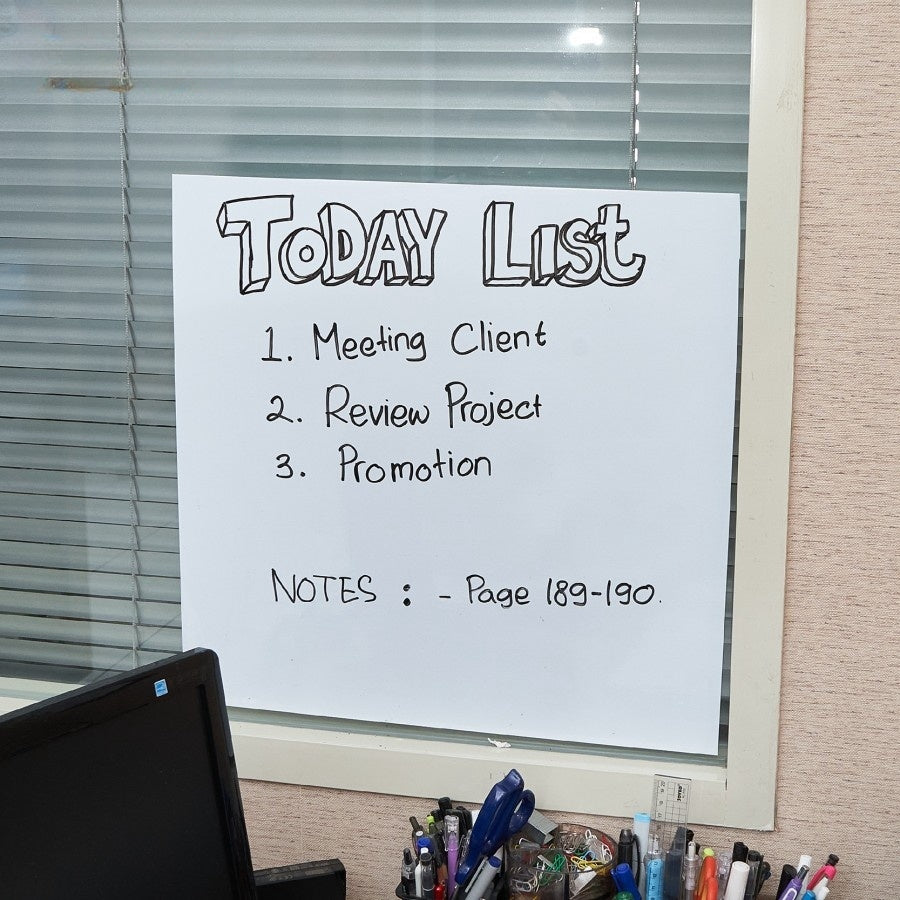 TODAY LIST
1. Meeting Client
2. Review Project
3. Promotion
NOTES : - Page 189-190.